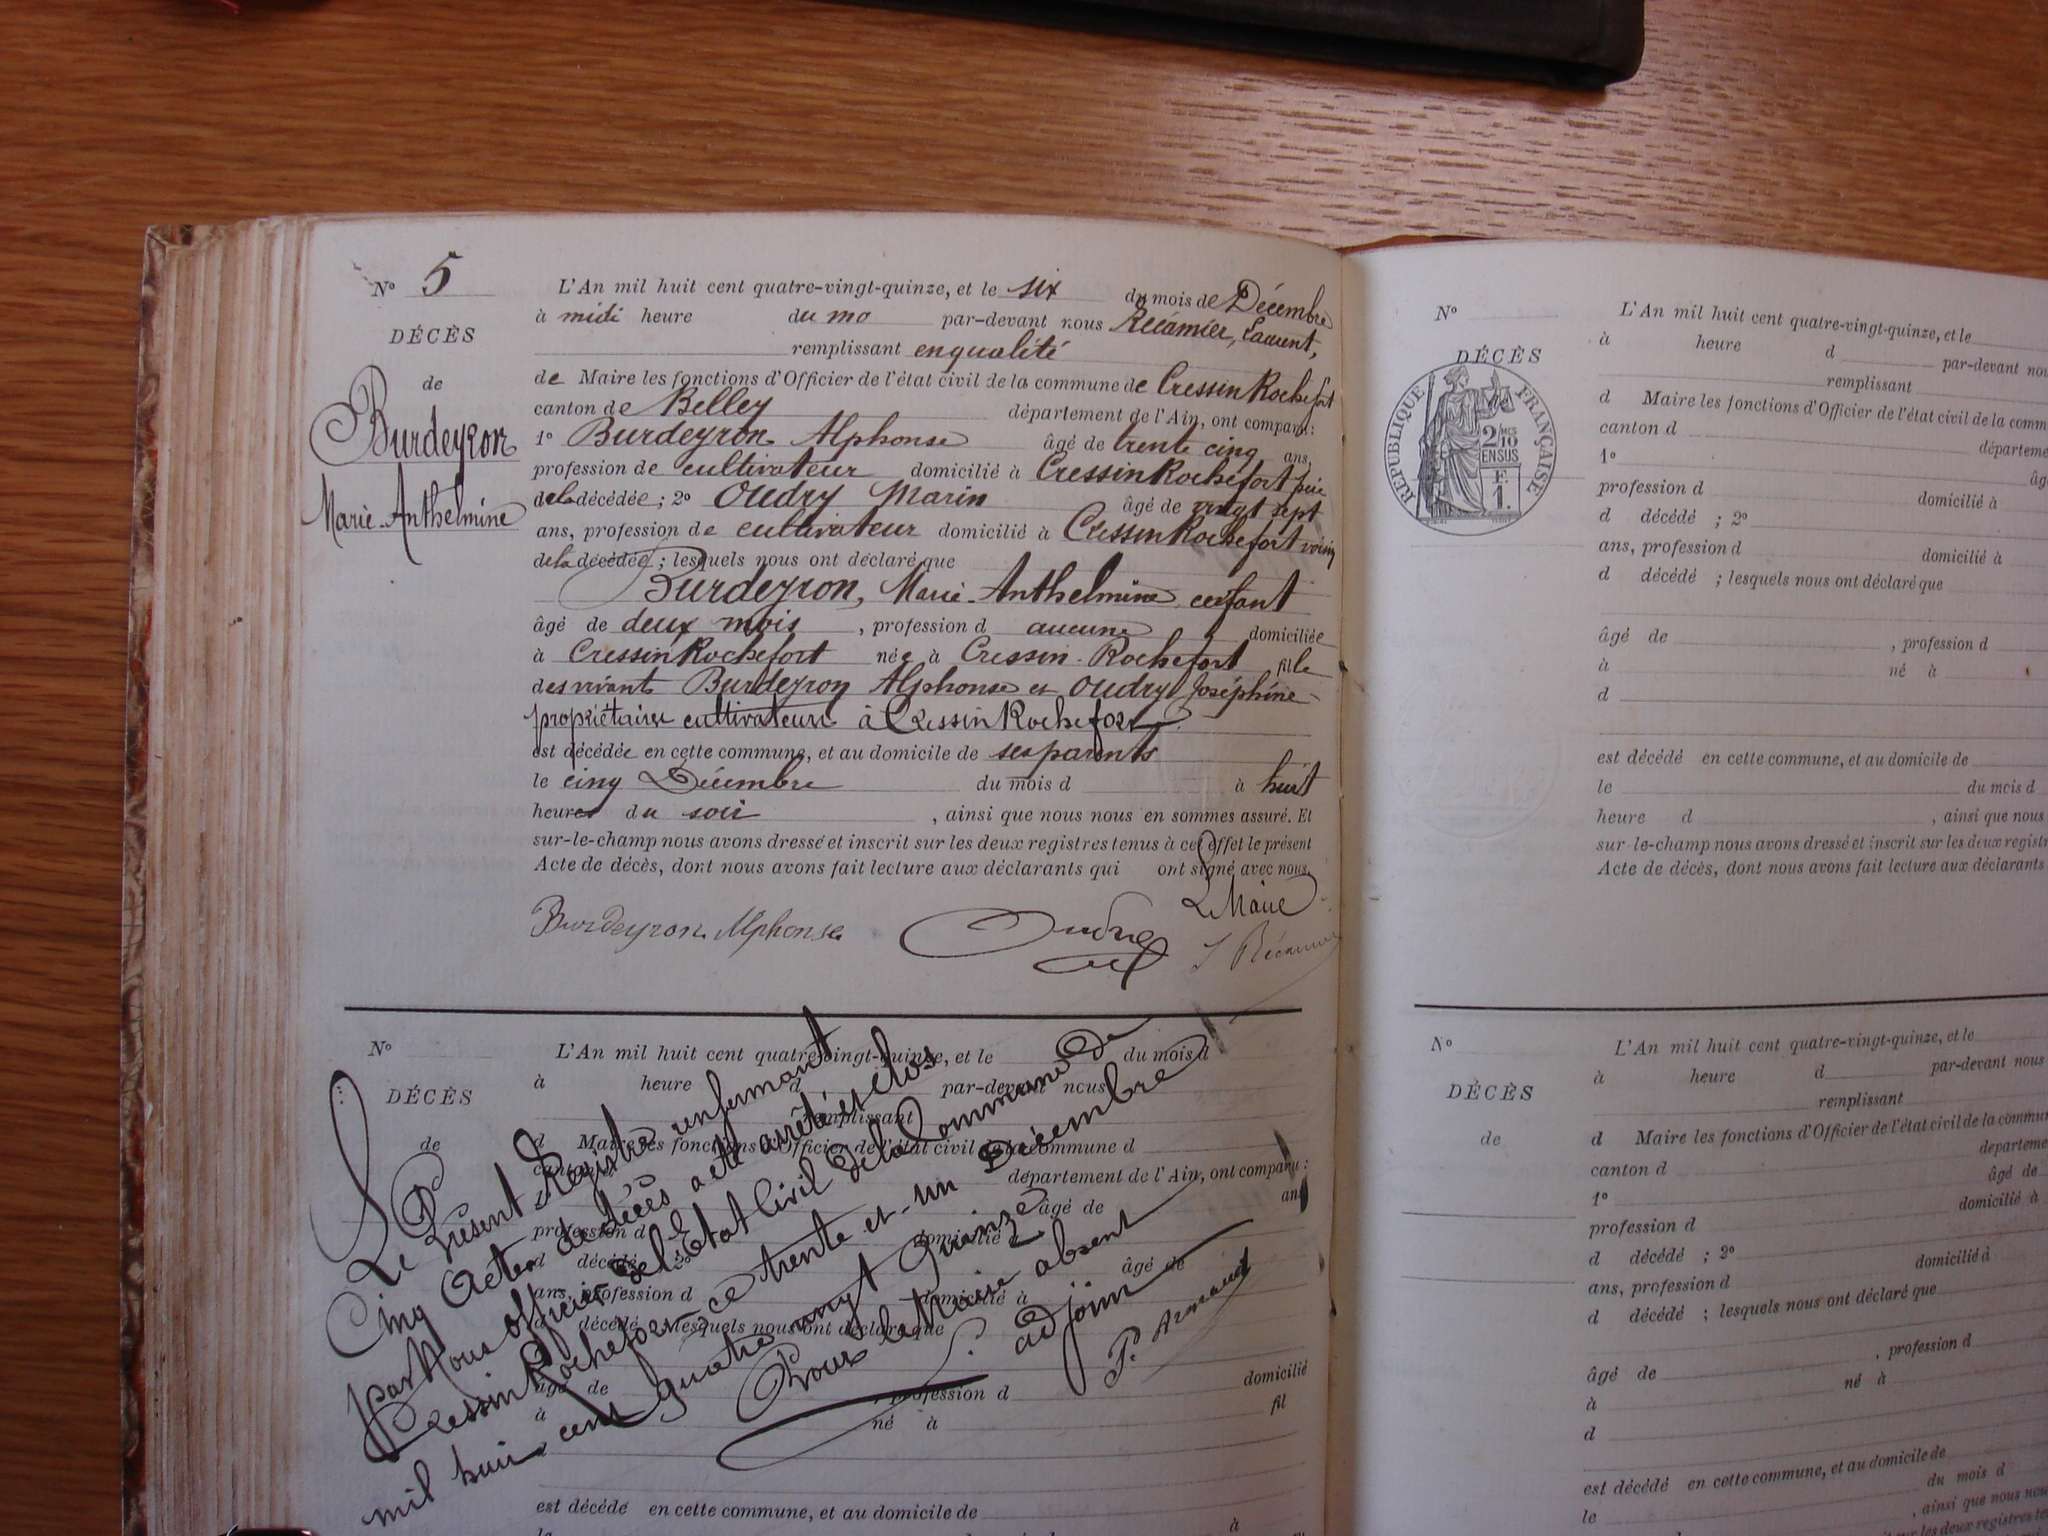 Nº 5
DÉCÈS
de
Burdeyron
Marie-Anthelmine
L'An mil huit cent quatre-vingt-quinze, et le six du mois de Décembre
à midi heure du mo par-devant nous Récamier, Laurent,
remplissant en qualité
de Maire les fonctions d'Officier de l'état civil de la commune de Cressin Rochefort
canton de Belley département de l'Ain, ont comparu:
1º Burdeyron Alphonse âgé de trente cinq ans,
profession de cultivateur domicilié à Cressin Rochefort père
de la décédée; 2º Oudry Marin âgé de vingt sept
ans, profession de cultivateur domicilié à Cressin Rochefort voisin
de la décédée; lesquels nous ont déclaré que
Burdeyron, Marie-Anthelmine, enfant
âgé de deux mois, profession d aucune domiciliée
à Cressin Rochefort née à Cressin-Rochefort fille
des vivants Burdeyron Alphonse et Oudry Joséphine
propriétaires cultivateurs à Cressin Rochefort
est décédée en cette commune, et au domicile de ses parents
le cinq Décembre du mois d à huit
heures du soir, ainsi que nous nous en sommes assuré. Et
sur-le-champ nous avons dressé et inscrit sur les deux registres tenus à cet effet le présent
Acte de décès, dont nous avons fait lecture aux déclarants qui ont signé avec nous.
Le Maire
Burdeyron Alphonse Oudry Récamier
Nº
DÉCÈS
de
L'An mil huit cent quatre-vingt-quinze, et le du mois d
à heure d par-devant nous
remplissant
d Maire les fonctions d'Officier de l'état civil de la commune d
canton d département de l'Ain, ont comparu:
âgé de ans
profession d domicilié à
d décédé 2º âgé de
ans, profession d domicilié à
d décédé lesquels nous ont déclaré que
âgé de profession d domicilié
à né à fil
est décédé en cette commune, et au domicile de
le à
Le Présent Registre renfermant
Cinq Actes de décès a été arrêté et clos
par Nous officier de l'Etat Civil de la Commune de
Cressin Rochefort ce trente et-un Décembre
mil huit cent quatre vingt Quinze
Pour le Maire absent
adjoint
P. Armand
Nº
DÉCÈS
RÉPUBLIQUE FRANÇAISE
2/10 EN SUS
F.
1.
L'An mil huit cent quatre-vingt-quinze, et le
à heure d par-devant nou
remplissant
d Maire les fonctions d'Officier de l'état civil de la comm
canton d départeme
1º âg
profession d domicilié à
d décédé ; 2º
ans, profession d domicilié à
d décédé ; lesquels nous ont déclaré que
âgé de , profession d
à né à
d
est décédé en cette commune, et au domicile de
le du mois d
heure d , ainsi que nous
sur-le-champ nous avons dressé et inscrit sur les deux registr
Acte de décès, dont nous avons fait lecture aux déclarants
Nº
DÉCÈS
de
L'An mil huit cent quatre-vingt-quinze, et le
à heure d par-devant nous
remplissant
d Maire les fonctions d'Officier de l'état civil de la commu
canton d departeme
1º âgé de
profession d domicilié à
d décédé ; 2º
ans, profession d domicilié à
d décédé ; lesquels nous ont déclaré que
âgé de , profession d
à né à
d
est décédé en cette commune, et au domicile de
le du mois d
, ainsi que nous nou